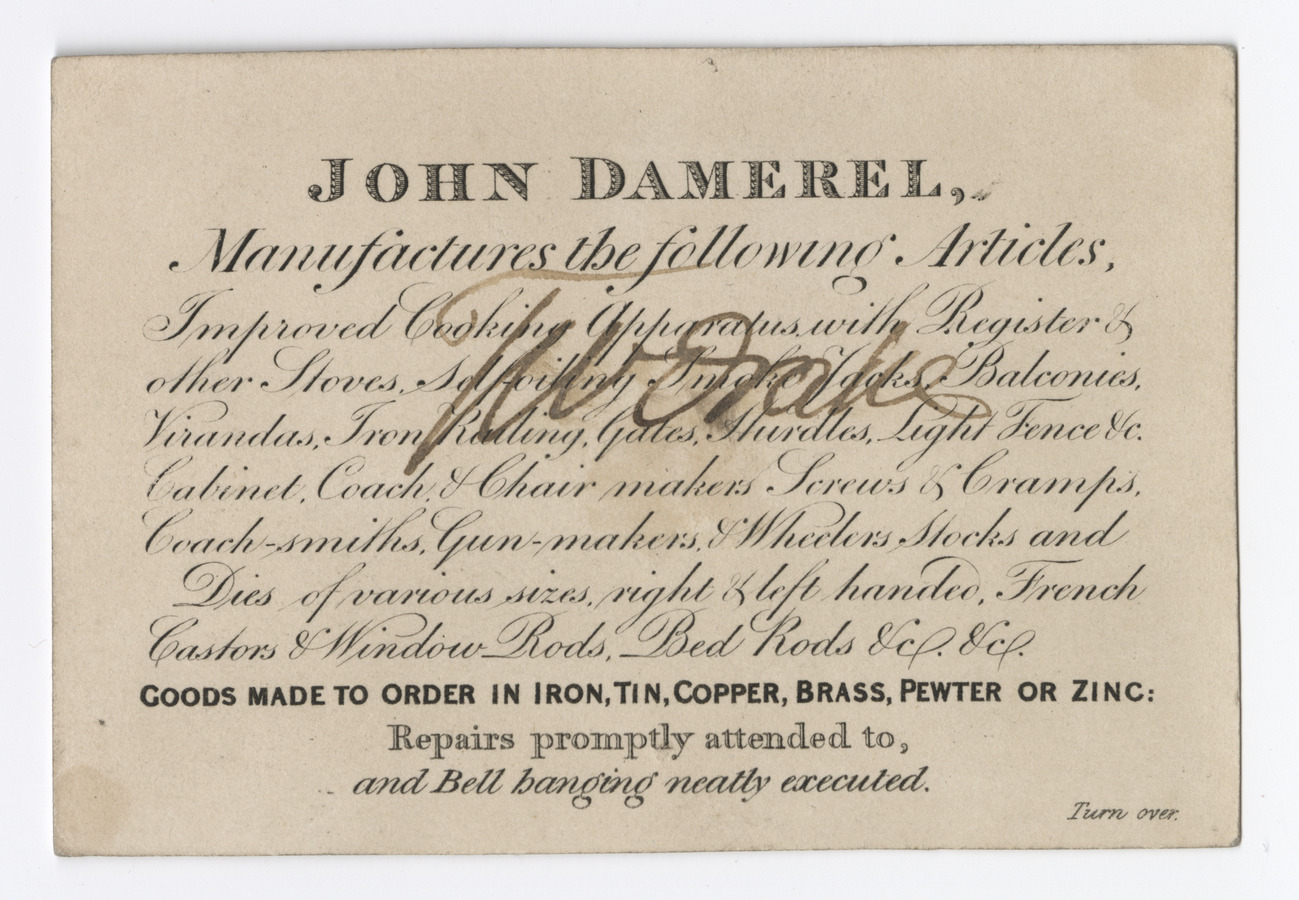 JOHN DAMEREL,
Manufactures the following Articles,
Improved Cooking Apparatus, with Register &
other Stoves, Self-oiling Smoke Jacks, Balconies,
Virandas, Iron Railing, Gates, Hurdles, Light Fence &c.
Cabinet, Coach, & Chair makers Screws & Cramps,
Coach-smiths, Gun-makers, & Wheelers Stocks and
Dies of various sizes, right & left handed, French
Castors & Window Rods, Bed Rods &c. &c.
GOODS MADE TO ORDER IN IRON, TIN, COPPER, BRASS, PEWTER OR ZINC:
Repairs promptly attended to,
and Bell hanging neatly executed.
Turn over.